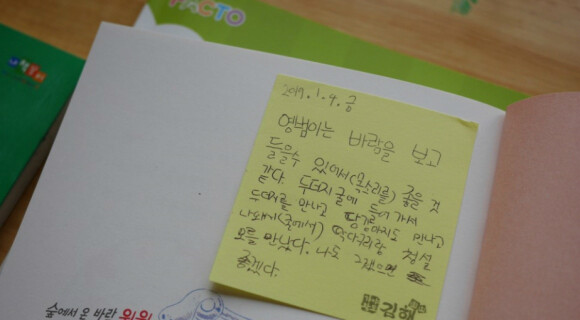 FACTO
2019. 1. 4. 금
영범이는 바람을 보고
들을수 있어서(목소리를) 좋을 것
같다. 두더지 굴에 들어 가서
두더지를 만나고 땅강아지도 만나고
나와서(굴에서) 딱다구리랑 청설
모를 만났다. 나도 그랬으면
좋겠다.
김해
숲에서 온 바람 윙윙